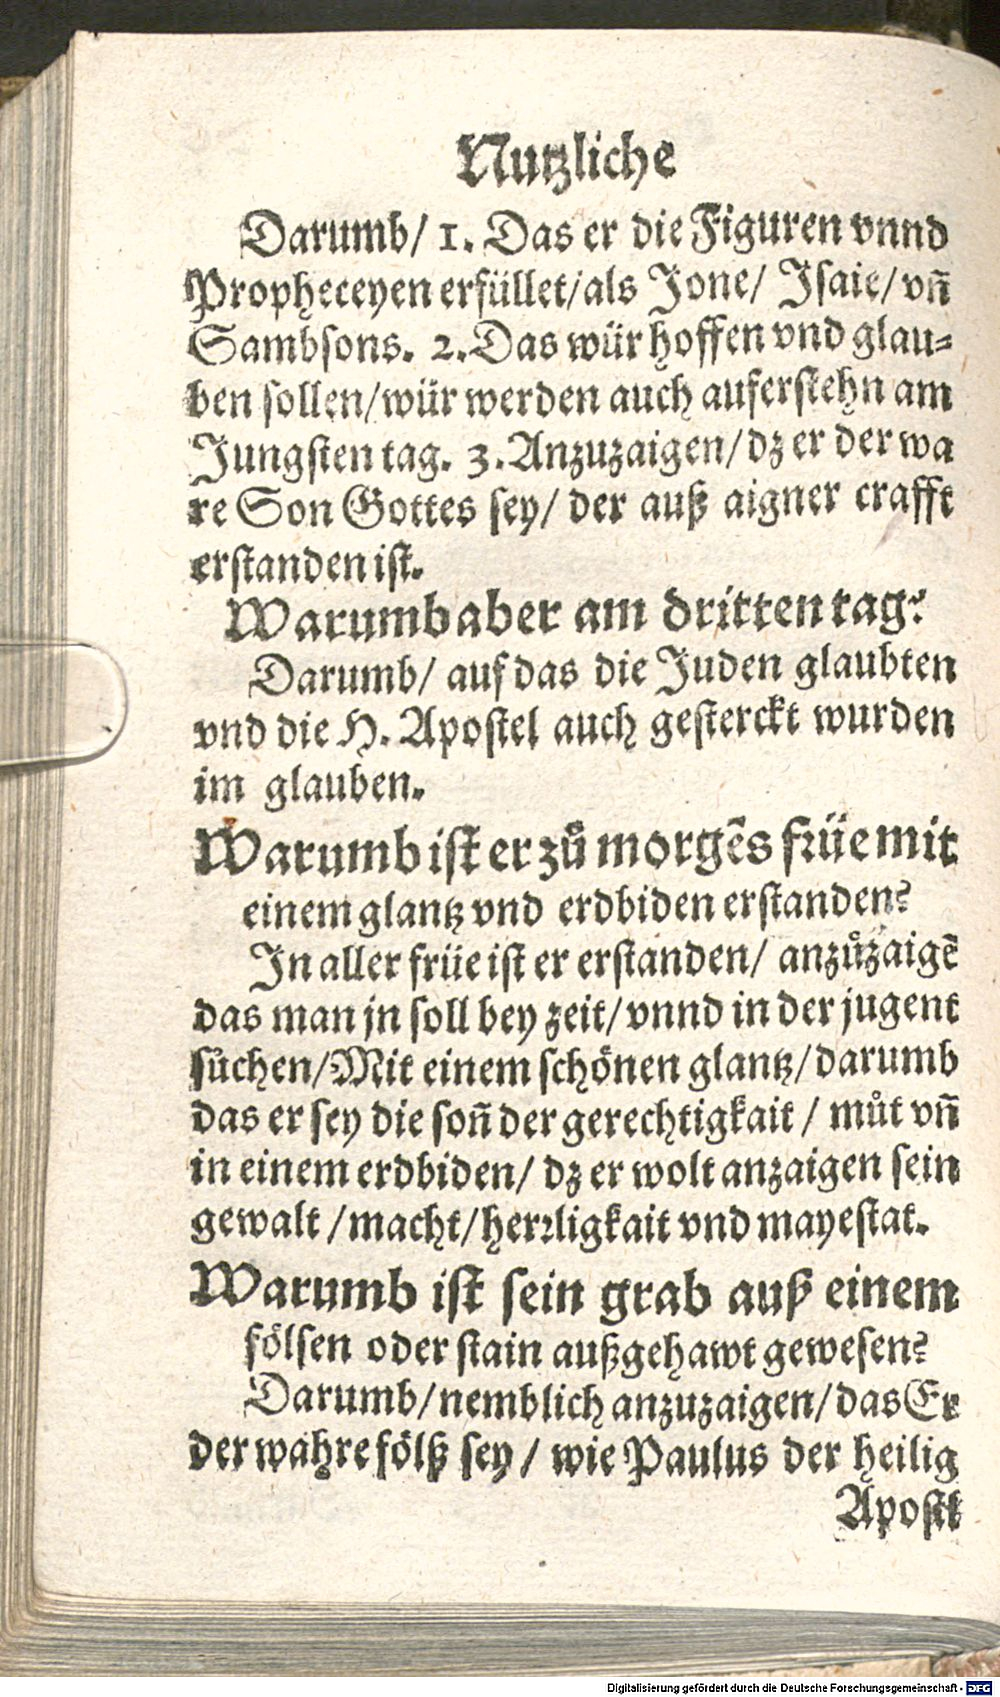 Nutzliche
Darumb/ 1. Das er die Figuren vnnd
Propheceyen erfüllet/als Jone/ Jsaie/ vn̄
Sambsons. 2. Das wür hoffen vnd glau-
ben sollen/wür werden auch auferstehn am
Jungsten tag. 3. Anzuzaigen/ dz er der wa
re Son Gottes sey/ der auß aigner crafft
erstanden ist.
Warumb aber am dritten tag?
Darumb/ auf das die Juden glaubten
vnd die H. Apostel auch gesterckt wurden
im glauben.
Warumb ist er zů morgēs früe mit
einem glantz vnd erdbiden erstanden?
In aller früe ist er erstanden/ anzůzaigē
das man jn soll bey zeit/ vnnd in der jugent
sůchen/Mit einem schönen glantz/ darumb
das er sey die son̄ der gerechtigkait / můt vn̄
in einem erdbiden/ dz er wolt anzaigen sein
gewalt /macht/ herꝛligkait vnd mayestat.
Warumb ist sein grab auß einem
fölsen oder stain außgehawt gewesen?
Darumb/ nemblich anzuzaigen/ das Er
der wahre fölß sey / wie Paulus der heilig
Apostl
Digitalisierung gefördert durch die Deutsche Forschungsgemeinschaft - DFG